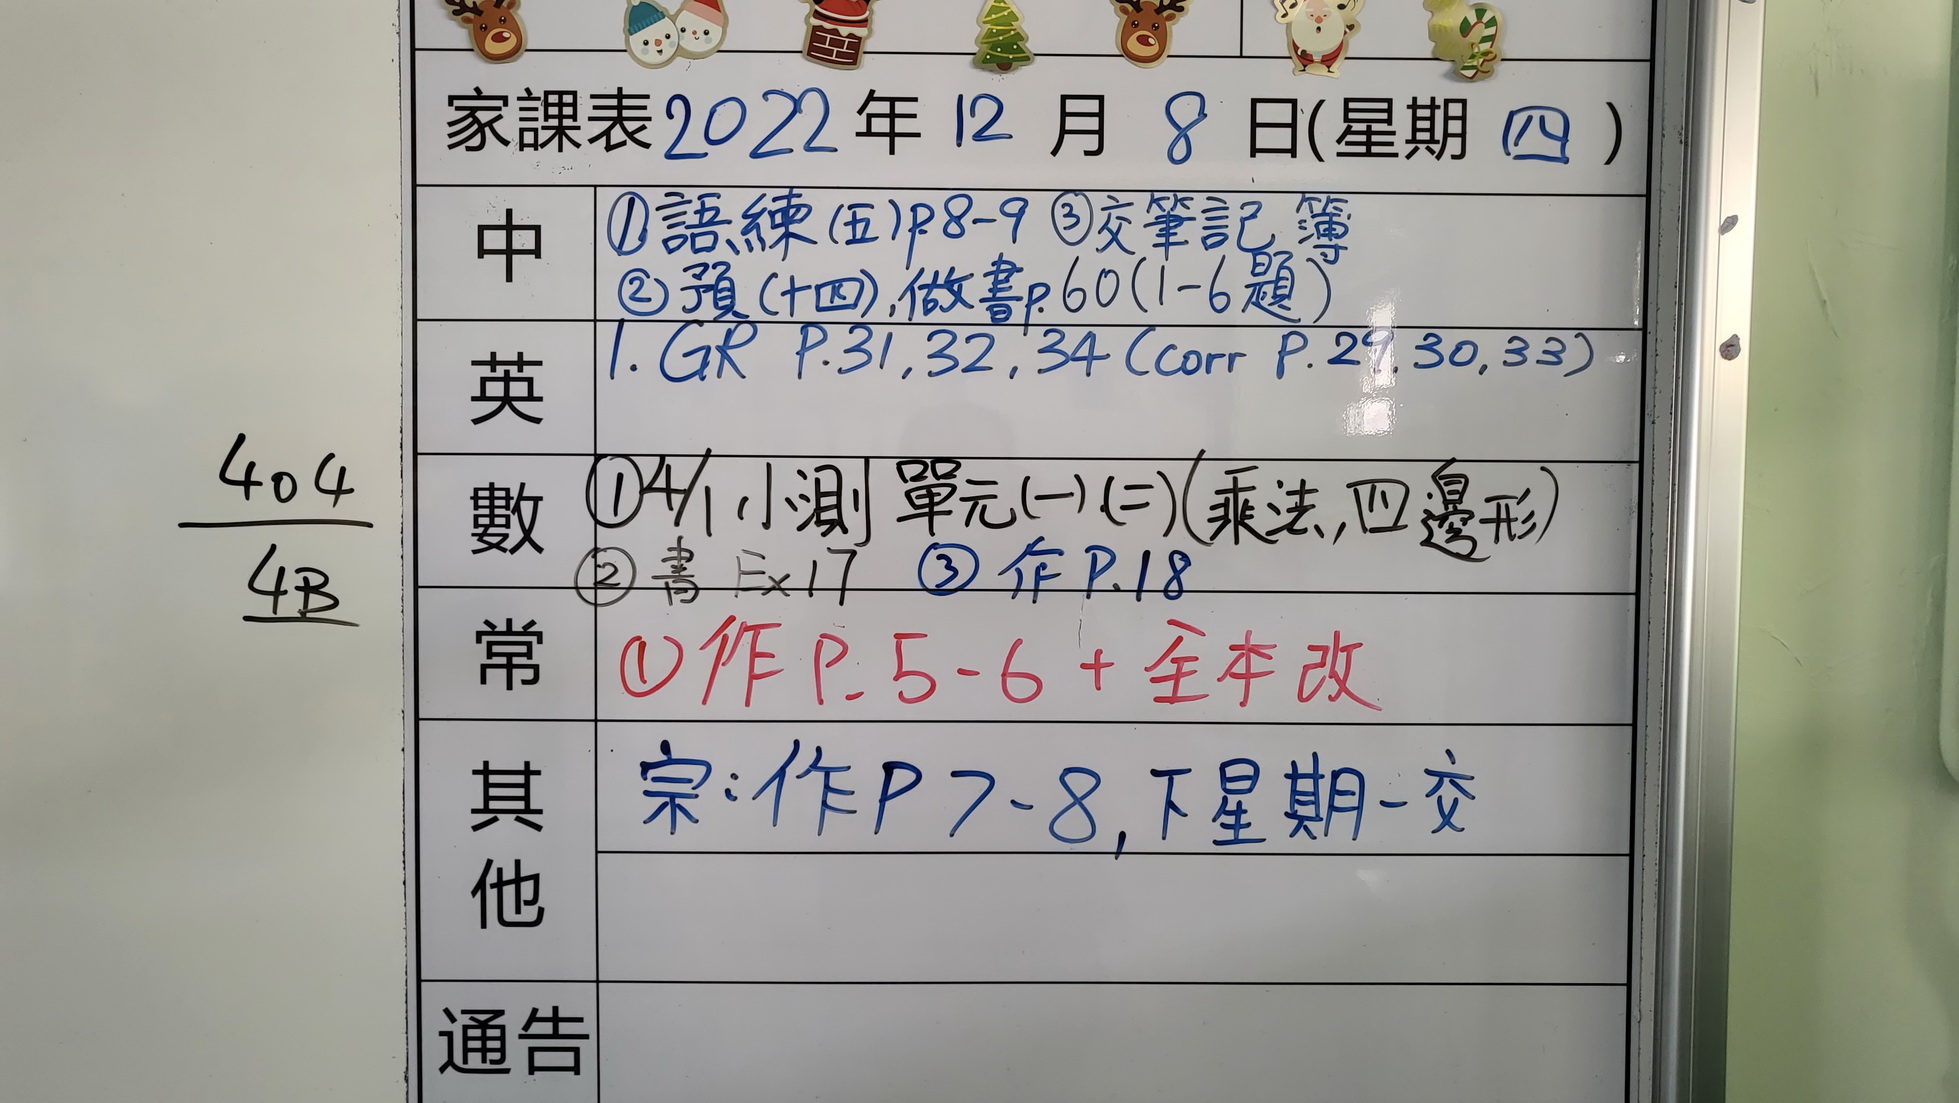 家課表2022年12月8日(星期四)
中
①語練(五)p.8-9 ③交筆記簿
②預(十四),做書p.60(1-6題)
英
1. GR P.31,32,34(corr P.29,30,33)
404
4B
數
①4/1小測 單元(一)(二)(乘法,四邊形)
②書 Ex17 ③作P.18
常
①作P.5-6+全本改
其他
宗:作P7-8,下星期一交
通告